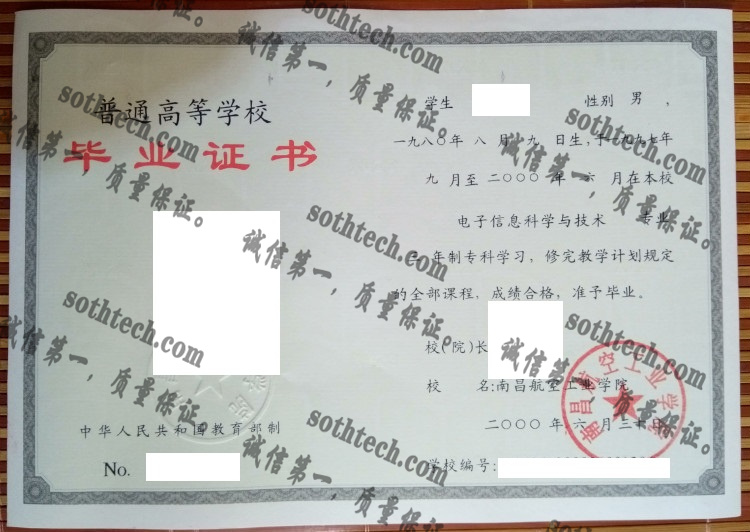 普通高等学校
毕业证书
中华人民共和国教育部制
No.
学生 性别 男 ,
一九八〇年 八 月 九 日生,于一九九七年
九 月至 二〇〇〇 年 六 月在本校
电子信息科学与技术 专业
三 年制专科学习,修完教学计划规定
的全部课程,成绩合格,准予毕业。
校(院)长
校 名:南昌航空工业学院
二〇〇〇 年 六 月三十日
学校编号:
南昌航空工业学院
sothtech.com
诚信第一,质量保证。
sothtech.com
诚信第一,质量保证。
sothtech.com
诚信第一,质量保证。
sothtech.com
诚信第一,质量保证。
sothtech.com
诚信第一,质量保证。
sothtech.com
诚信第一,质量保证。
sothtech.com
诚信第一,质量保证。